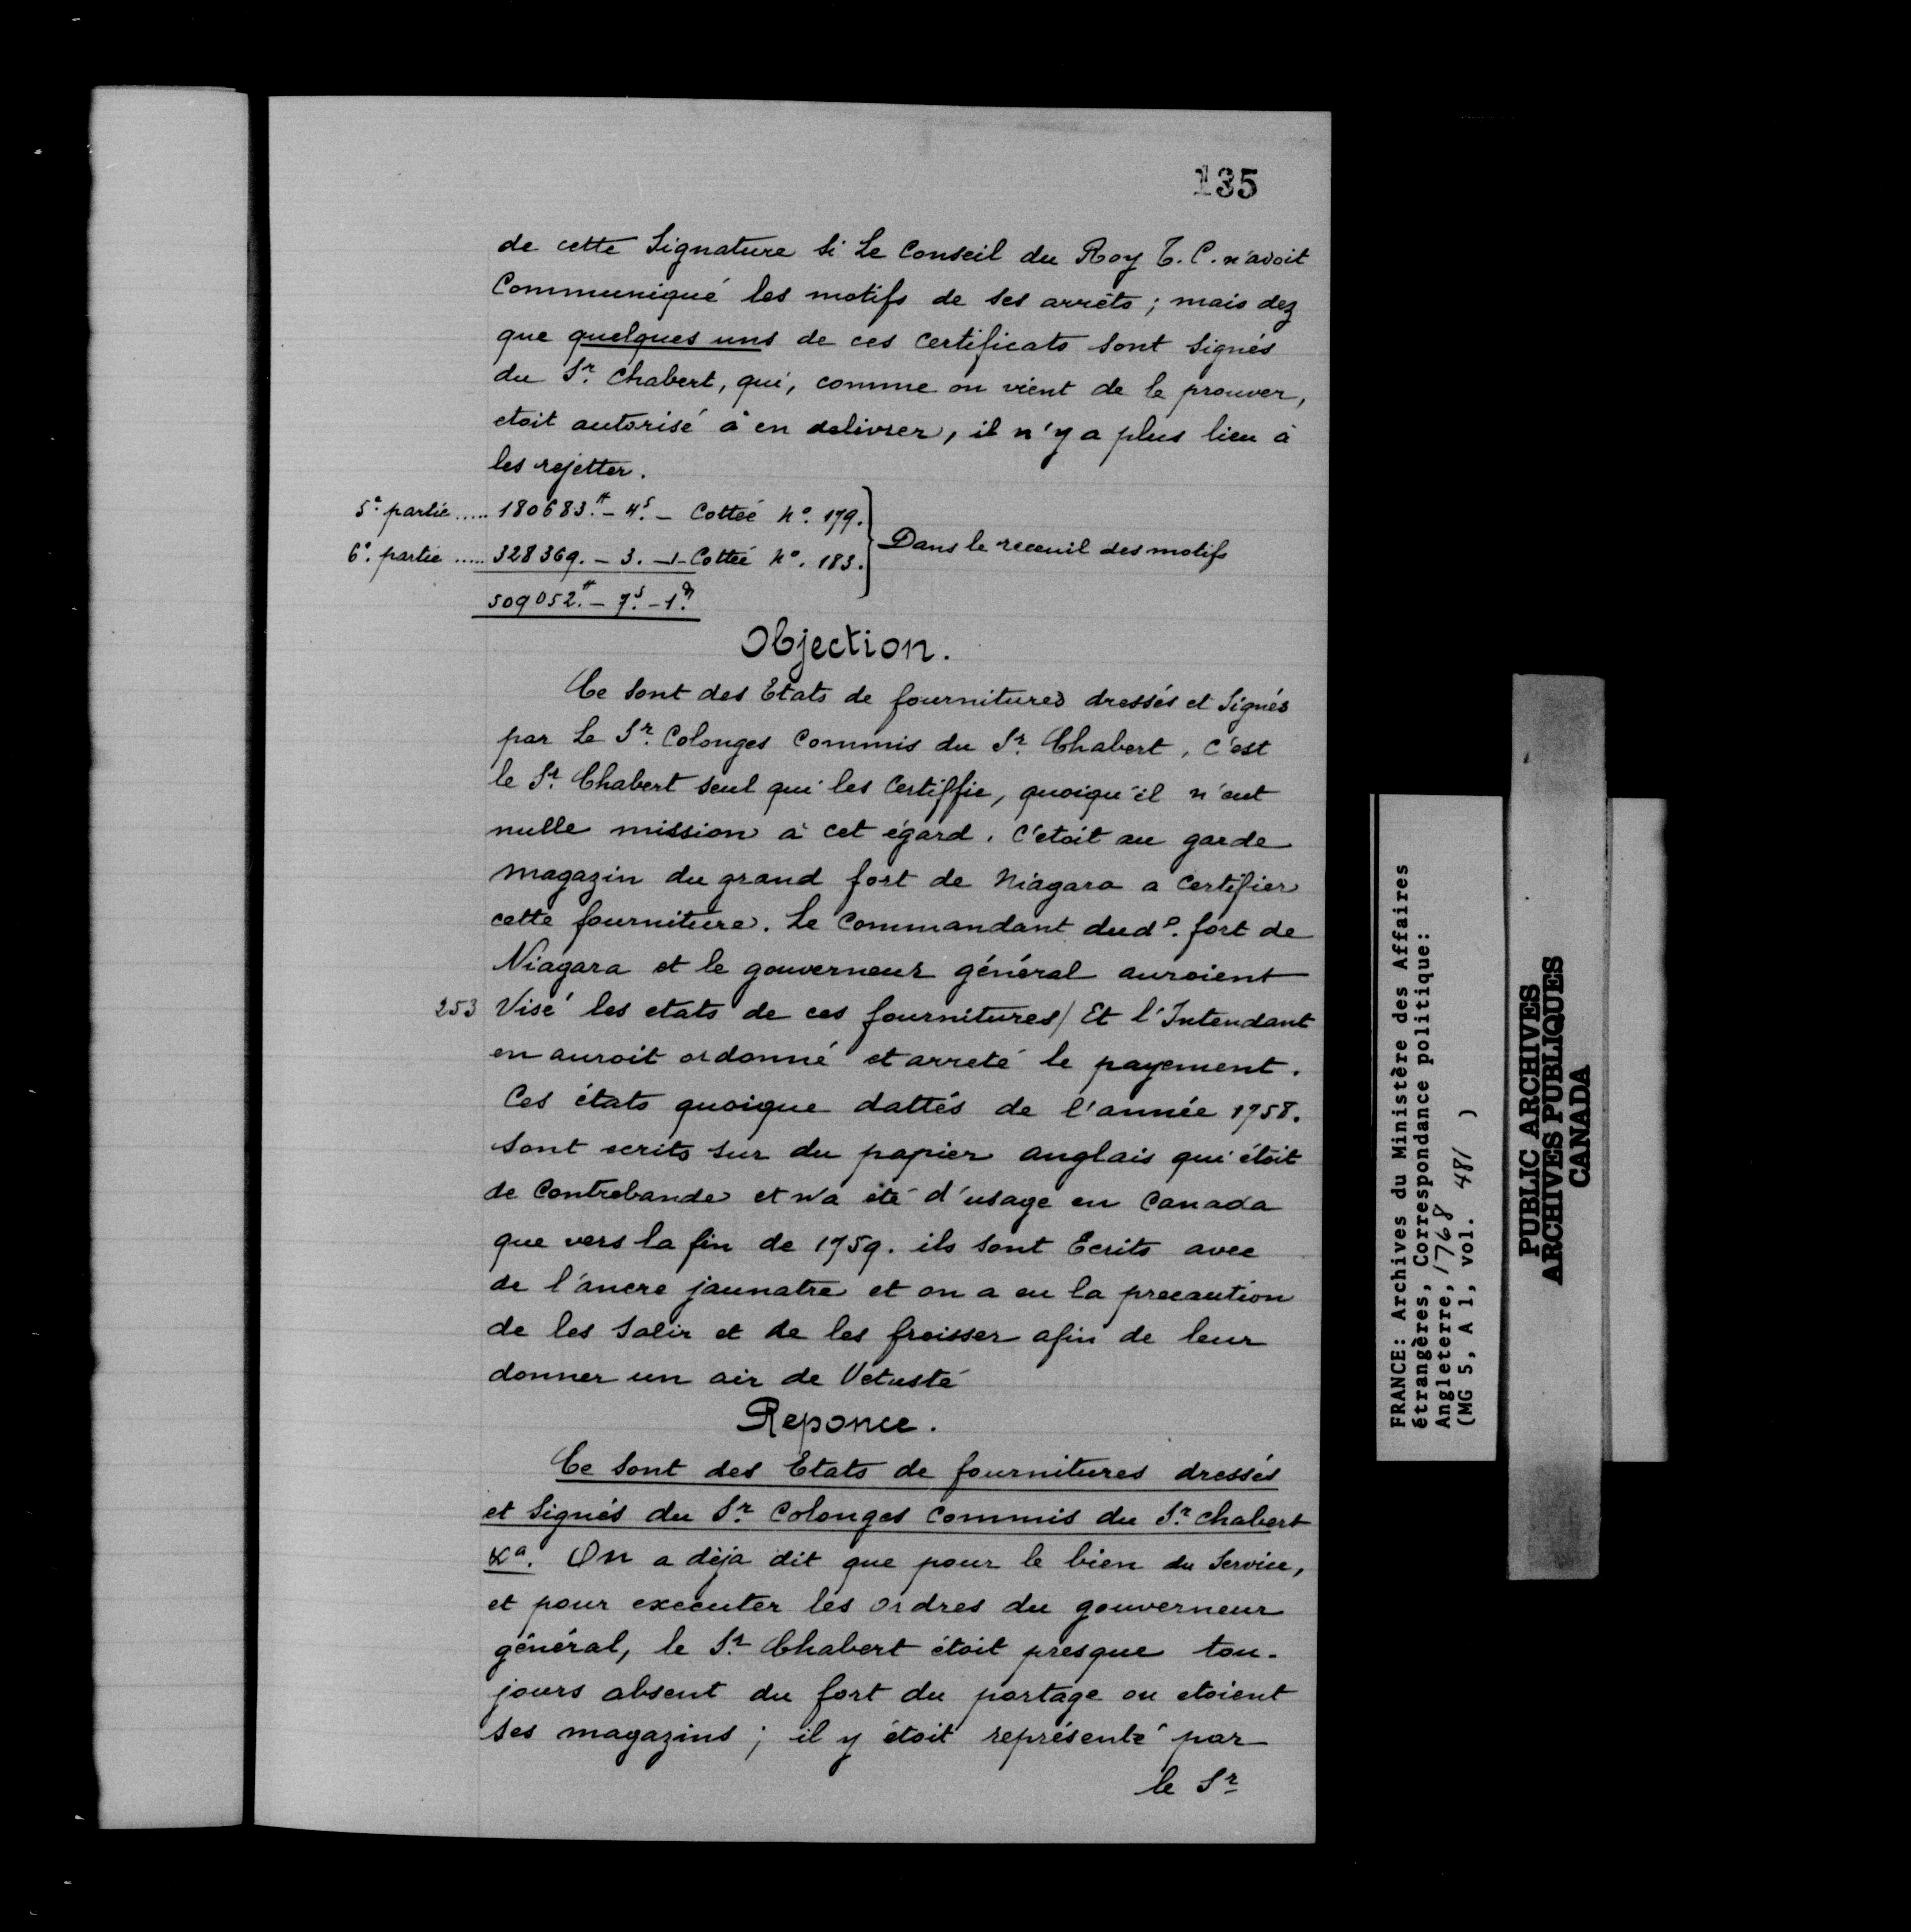 135
de cette Signature Si Le Conseil du Roy T. C. n'avoit
Communiqué les motifs de ses arrêts ; mais dez
que quelques uns de ces certificats sont signés
du Sr. Chabert, qui, comme on vient de le prouver,
etoit autorisé à en delivrer, il n'y a plus lieu à
les rejetter.
5e. partie ..... 180683.# - 4s. - Cottée No. 179.
6e. partie ..... 328369. - 3. - 1 - Cottée No. 183.
Dans le receuil des motifs
509052.# - 7s. - 1d.
Objection.
Ce sont des Etats de fournitures dressés et Signés
par Le Sr. Colonges Commis du Sr. Chabert, c'est
le Sr. Chabert seul qui les Certiffie, quoiqu'il n'eut
nulle mission à cet égard. C'etoit au garde
magazin du grand fort de Niagara a Certifier
cette fourniture. Le Commandant dudo. fort de
Niagara et le gouverneur général auroient
253 Visé les etats de ces fournitures/ Et l'Intendant
en auroit ordonné et arreté le payement.
Ces états quoique dattés de l'année 1758.
sont ecrits sur du papier anglais qui étoit
de Contrebande et n'a été d'usage en Canada
que vers la fin de 1759. ils sont Ecrits avec
de l'ancre jaunatre et on a eu la precaution
de les Salir et de les froisser afin de leur
donner un air de Vetusté
Reponce.
Ce sont des Etats de fournitures dressés
et Signés du Sr. Colonges Commis du Sr. Chabert
&a. On a déja dit que pour le bien du Service,
et pour executer les ordres du gouverneur
général, le Sr. Chabert étoit presque tou-
jours absent du fort du portage ou etoient
ses magazins ; il y étoit représenté par
le Sr
FRANCE: Archives du Ministère des Affaires
étrangères, Correspondance politique:
Angleterre, 1768
(MG 5, A 1, vol. 481 )
PUBLIC ARCHIVES
ARCHIVES PUBLIQUES
CANADA